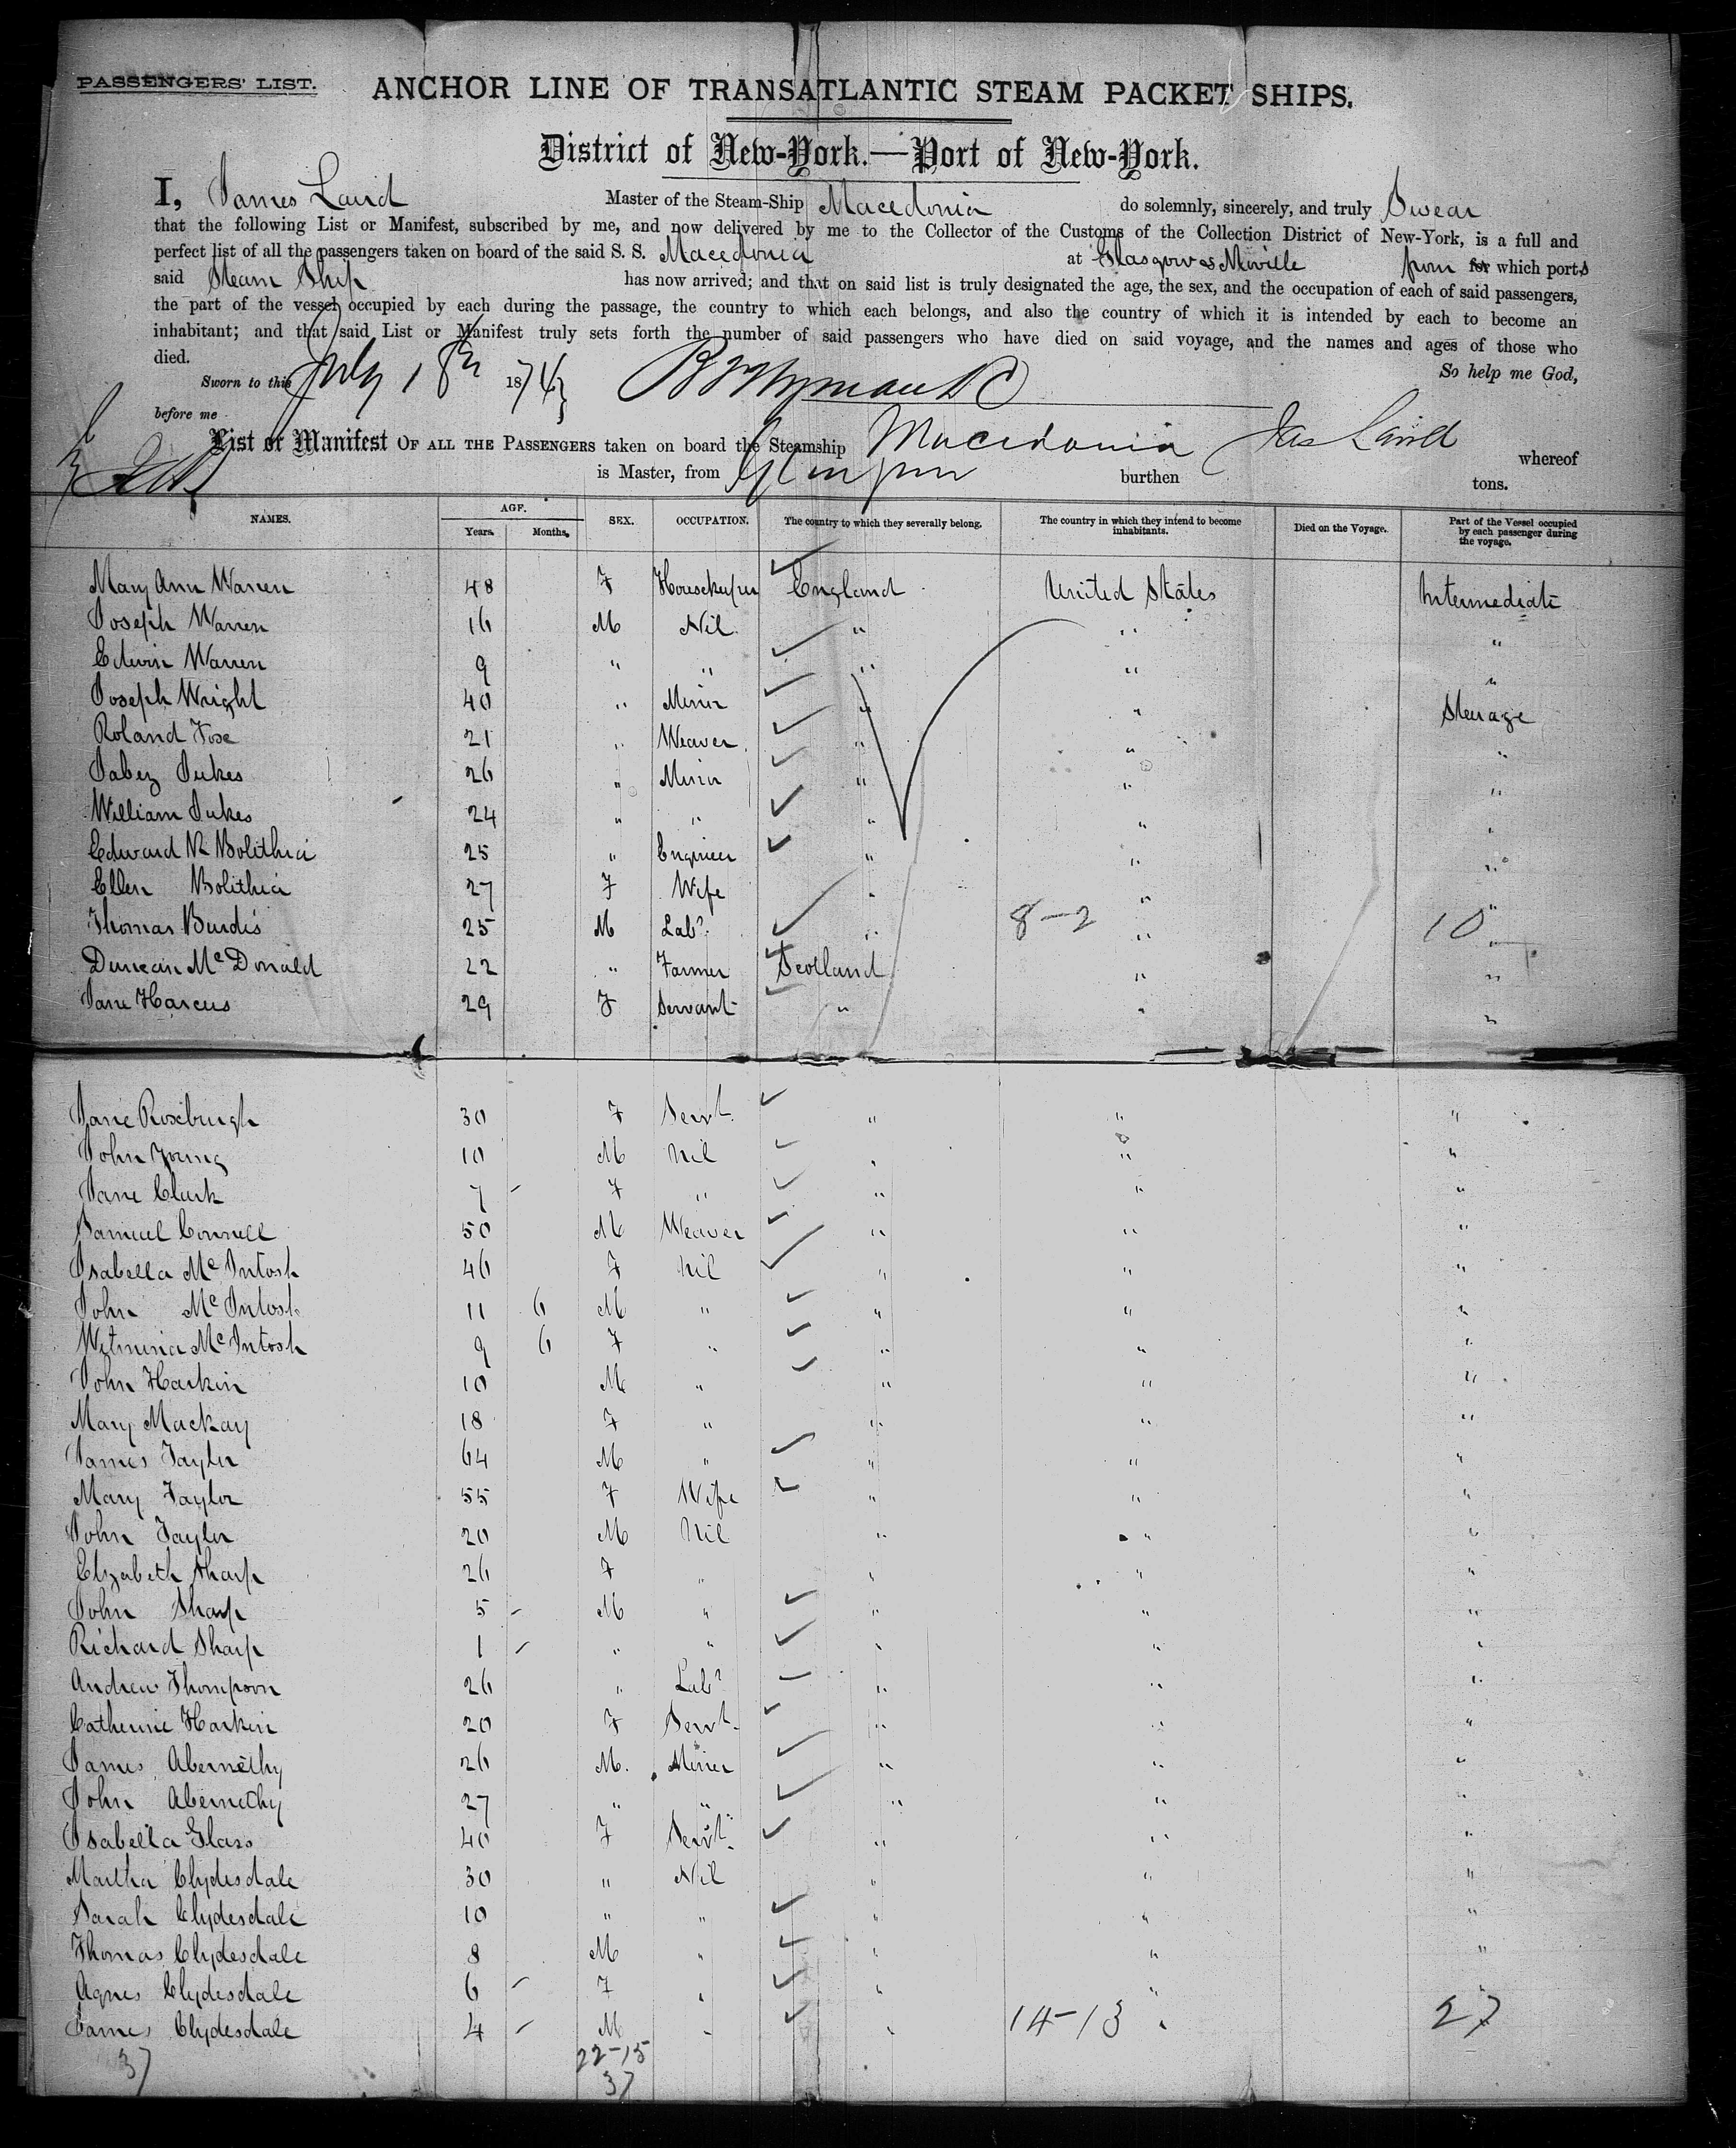 PASSENGERS' LIST. ANCHOR LINE OF TRANSATLANTIC STEAM PACKET SHIPS.
District of New-York.—Port of New-York.
I, James Laird Master of the Steam-Ship Macedonia do solemnly, sincerely, and truly Swear
that the following List or Manifest, subscribed by me, and now delivered by me to the Collector of the Customs of the Collection District of New-York, is a full and
perfect list of all the passengers taken on board of the said S. S. Macedonia at Glasgow & Moville from for which ports
said Steam Ship has now arrived; and that on said list is truly designated the age, the sex, and the occupation of each of said passengers,
the part of the vessel occupied by each during the passage, the country to which each belongs, and also the country of which it is intended by each to become an
inhabitant; and that said List or Manifest truly sets forth the number of said passengers who have died on said voyage, and the names and ages of those who
died. So help me God,
Sworn to this July 18th 1874
before me Jas Laird
List or Manifest OF ALL THE PASSENGERS taken on board the Steamship Macedonia whereof
is Master, from Glasgow burthen tons.
NAMES. AGE. Years. Months. SEX. OCCUPATION. The country to which they severally belong. The country in which they intend to become inhabitants. Died on the Voyage. Part of the Vessel occupied by each passenger during the voyage.
Mary Ann Warren 48 F Housekeeper England United States Intermediate
Joseph Warren 16 M Nil " " "
Edwin Warren 9 " " " " "
Joseph Wright 40 " Miner " " Steerage
Roland Fose 21 " Weaver " " "
Jabez Jukes 26 " Miner " " "
William Jukes 24 " " " " "
Edward N Bolithia 25 " Engineer " " "
Ellen Bolithia 27 F Wife " " "
Thomas Burdis 25 M Labr " 8-2 " 10 "
Duncan McDonald 22 " Farmer Scotland " "
Jane Harcus 29 F Servant " " "
Jane Roseburgh 30 F Servt. " " "
John Young 10 M Nil " " "
Jane Clark 7 - F " " " "
Samuel Connell 50 M Weaver " " "
Isabella McIntosh 46 F Nil " " "
John McIntosh 11 6 M " " " "
Wilmina McIntosh 9 6 F " " " "
John Harkin 10 M " " " "
Mary Mackay 18 F " " " "
James Taylor 64 M " " " "
Mary Taylor 55 F Wife " " "
John Taylor 20 M Nil " " "
Elizabeth Sharp 26 F " " " "
John Sharp 5 - M " " " "
Richard Sharp 1 - " " " " "
Andrew Thompson 26 " Labr " " "
Catherine Harkin 20 F Servt. " " "
James Abernethy 26 M. Miner " " "
John Abernethy 27 " " " " "
Isabella Glass 40 F Servt. " " "
Martha Clydesdale 30 " Nil " " "
Sarah Clydesdale 10 " " " " "
Thomas Clydesdale 8 M " " " "
Agnes Clydesdale 6 - F " " " "
James Clydesdale 4 - M " " 14-13 " 27
37 22-15
37